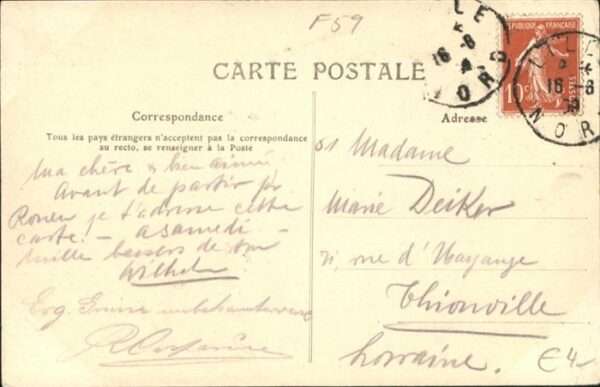 F59
LILLE
16 -8
NORD
RÉPUBLIQUE FRANÇAISE
10c
POSTES
LILLE
16 -8
NORD
CARTE POSTALE
Correspondance
Adresse
Tous les pays étrangers n'acceptent pas la correspondance
au recto, se renseigner à la Poste
Ma chère & bien aimée
Avant de partir pr
Rouen je t'adresse cette
carte! - a samedi -
mille baisers de ton
Wilhelm
Madame
Marie Deiker
rue d'Hayange
Thionville
Lorraine.
€4-